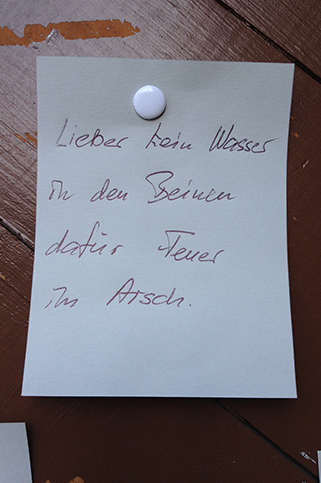 Lieber kein Wasser
in den Beinen
dafür Feuer
im Arsch.